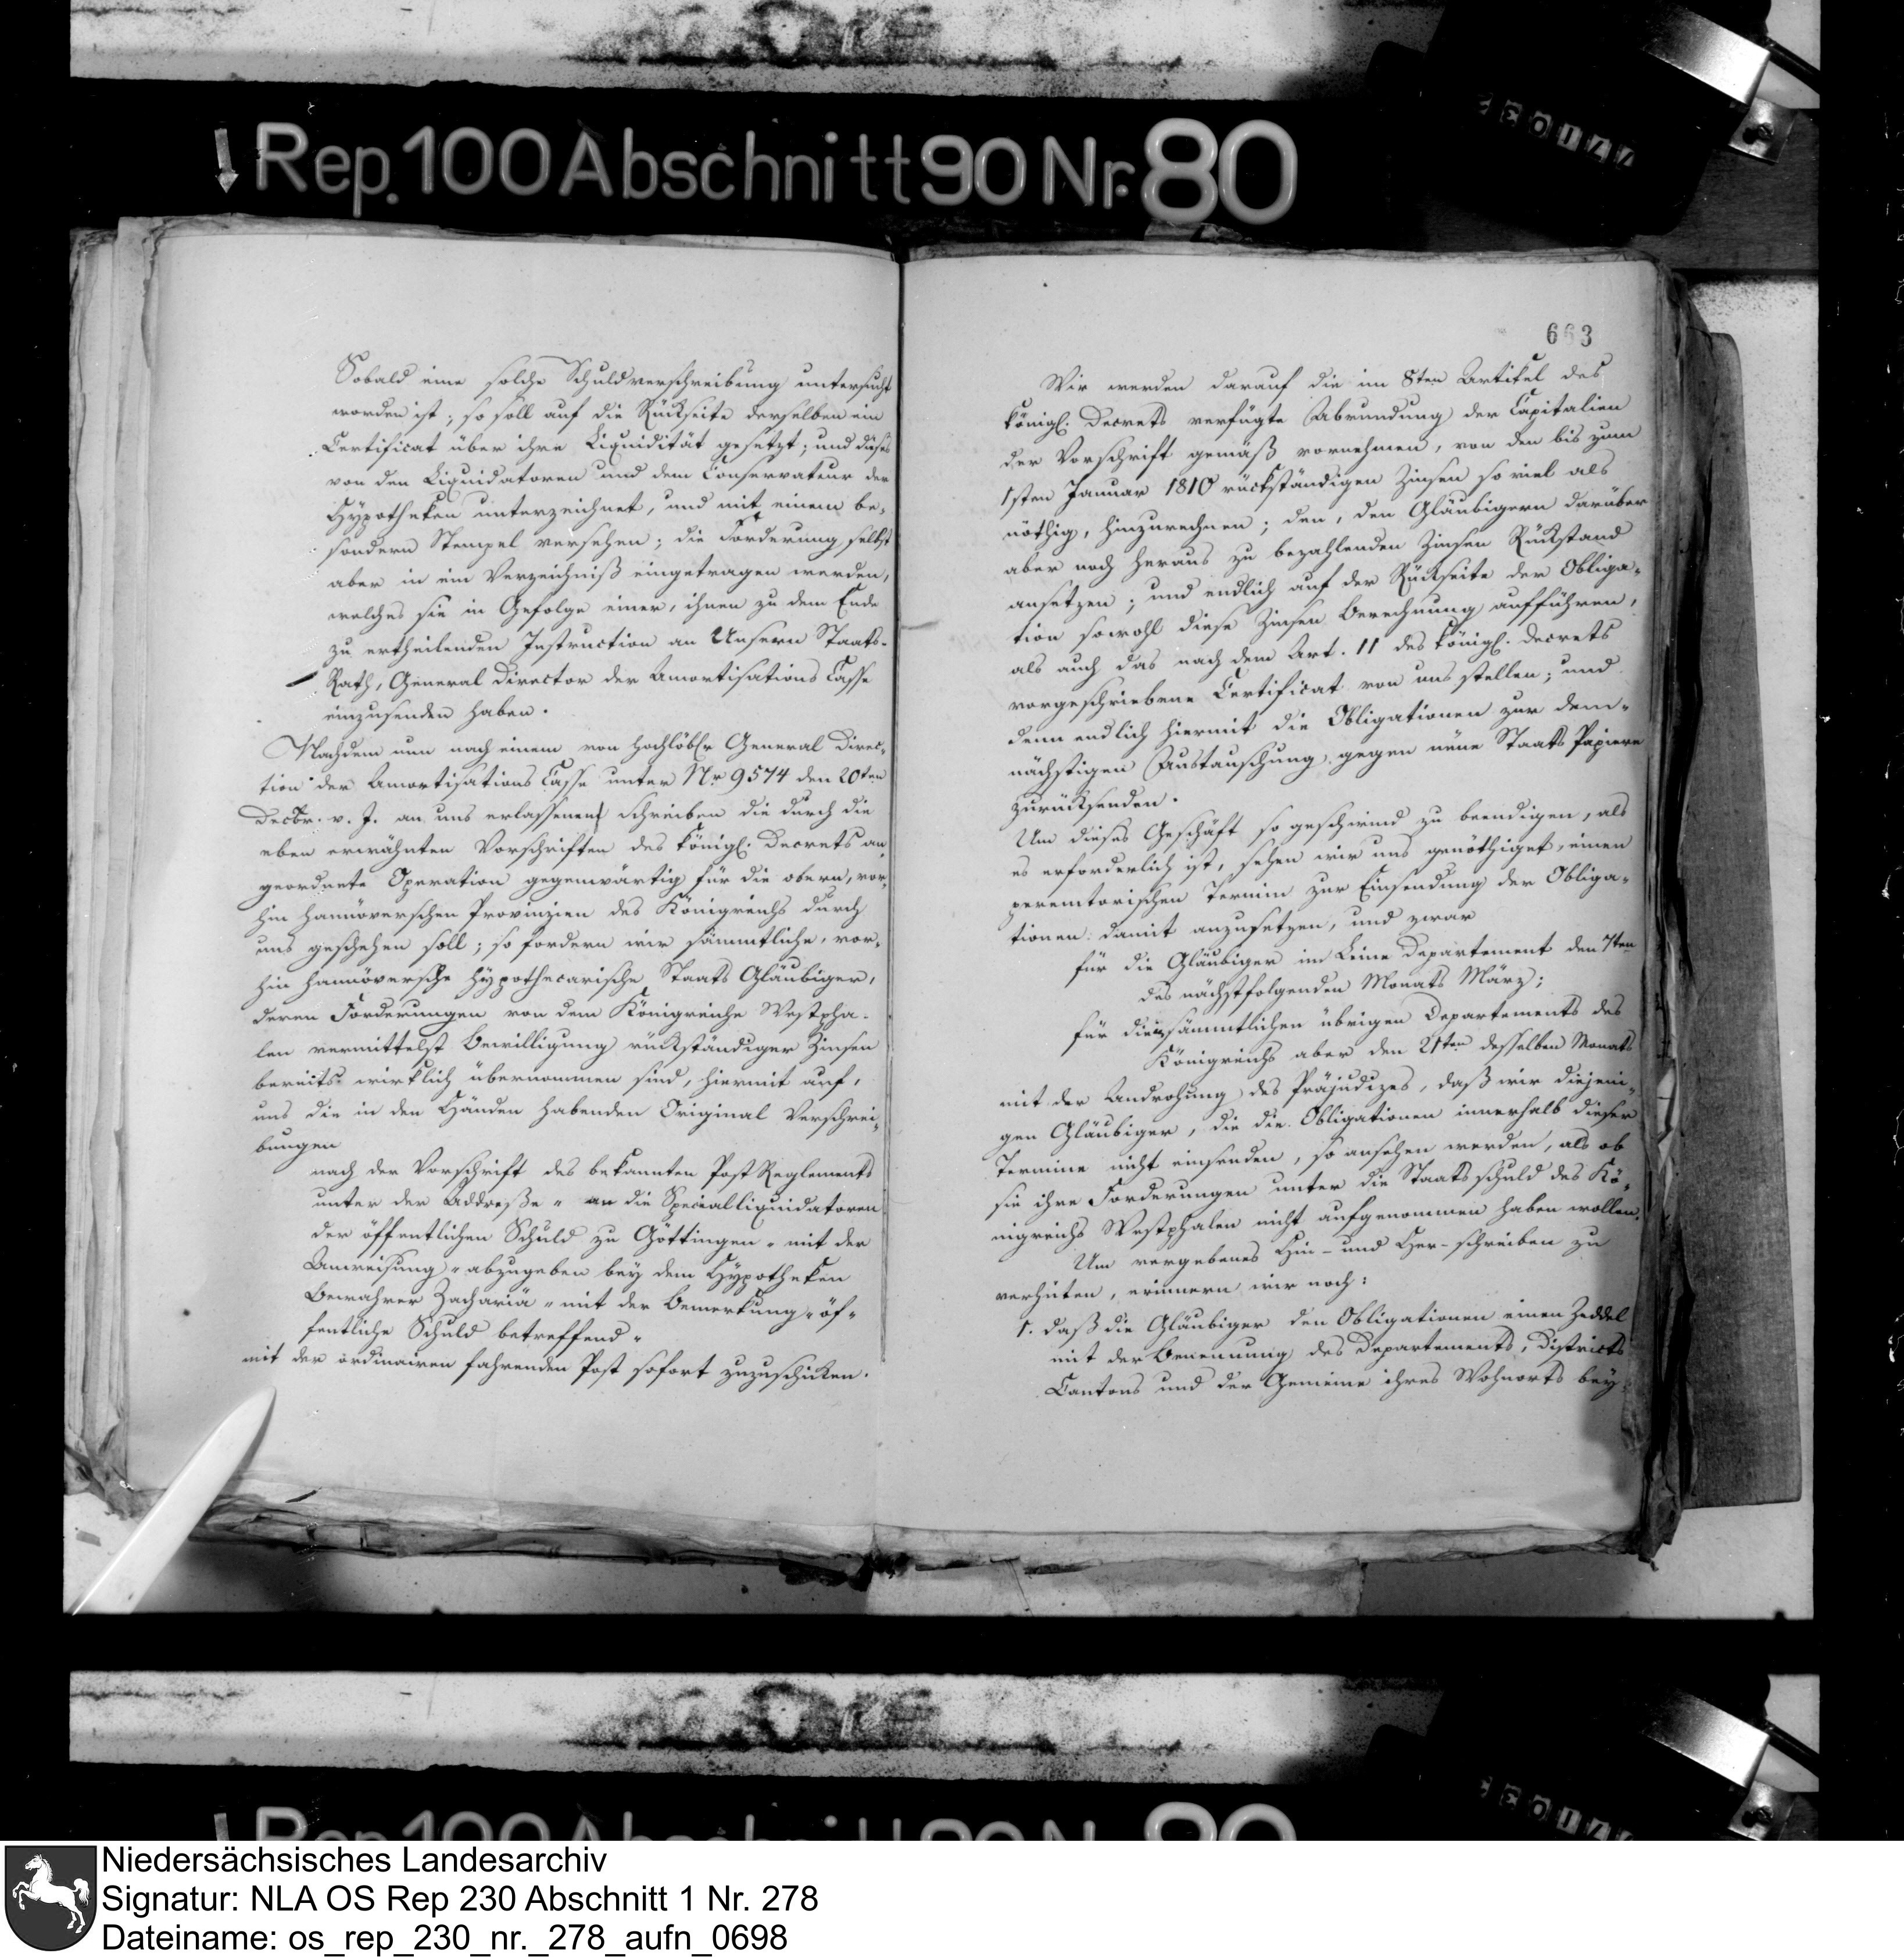 Rep. 100 Abschnitt 90 Nr. 80
Sobald eine solche Schuldverschreibung untersucht
worden ist; so soll auf die Rückseite derselben ein
Certificat über ihre Liquidität gesetzt; und dieses
von den Liquidatoren und dem Conservateur der
Hypotheken unterzeichnet, und mit einem be-
sondern Stempel versehen; die Forderung selbst
aber in ein Verzeichniß eingetragen werden,
welches sie in Gefolge einer, ihnen zu dem Ende
zu ertheilenden Instruction an Unsern Staats-
Rath, General Director der Amortisations Casse
einzusenden haben.
Nachdem nun nach einem von Hochlöbl. General Direc-
tion der Amortisations Casse unter Nr. 9574 den 20ten
Decbr. v. J. an uns erlassenen Schreiben die durch die
eben erwähnten Vorschriften des Königl. Decrets an-
geordnete Operation gegenwärtig für die obern, vor-
hin hannöverschen Provinzien des Königreichs durch
uns geschehen soll; so fordern wir sämmtliche, vor-
hin hannöversche hypothecarische Staats Gläubiger,
deren Forderungen von dem Königreiche Westpha-
len vermittelst Bewilligung rückständiger Zinsen
bereits wirklich übernommen sind, hiermit auf,
uns die in den Händen habenden Original Verschrei-
bungen
nach der Vorschrift des bekannten Post Reglements
unter der Addresse „ an die Specialliquidatoren
der öffentlichen Schuld zu Göttingen „ mit der
Anweisung „ abzugeben bey dem Hypotheken
Bewahrer Zachariä „ mit der Bemerkung „ öf-
fentliche Schuld betreffend „
mit der ordinairen fahrenden Post sofort zuzuschicken.
663
Wir werden darauf die im 8ten Artikel des
Königl. Decrets verfügte Abrundung der Capitalien
der Vorschrift gemäß vornehmen, von den bis zum
1sten Januar 1810 rückständigen Zinsen so viel als
nöthig, hinzurechnen; den, den Gläubigern darüber
aber noch heraus zu bezahlenden Zinsen Rückstand
ansetzen; und endlich auf der Rückseite der Obliga-
tion sowohl diese Zinsen Berechnung aufführen,
als auch das nach dem Art. 11 des Königl. Decrets
vorgeschriebene Certificat von uns stellen; und
denn endlich hiermit die Obligationen zur dem-
nächstigen Austauschung gegen neue Staats Papiere
zurücksenden.
Um dieses Geschäft so geschwind zu beendigen, als
es erforderlich ist, sehen wir uns genöthiget, einen
peremtorischen Termin zur Einsendung der Obliga-
tionen damit anzusetzen, und zwar
für die Gläubiger im Leine Departement den 7ten
des nächstfolgenden Monats März;
für die sämmtlichen übrigen Departements des
Königreichs aber den 21ten desselben Monats
mit der Androhung des Präjudizes, daß wir diejeni-
gen Gläubiger, die die Obligationen innerhalb dieser
Termine nicht einsenden, so ansehen werden, als ob
sie ihre Forderungen unter die Staatsschuld des Kö-
nigreichs Westphalen nicht aufgenommen haben wollen.
Um vergebenes Hin- und Her-schreiben zu
verhüten, erinnern wir noch:
1. daß die Gläubiger den Obligationen einen Zeddel
mit der Benennung des Departements, Districts
Cantons und der Gemeine ihres Wohnorts bey-
Niedersächsisches Landesarchiv
Signatur: NLA OS Rep 230 Abschnitt 1 Nr. 278
Dateiname: os_rep_230_nr._278_aufn_0698